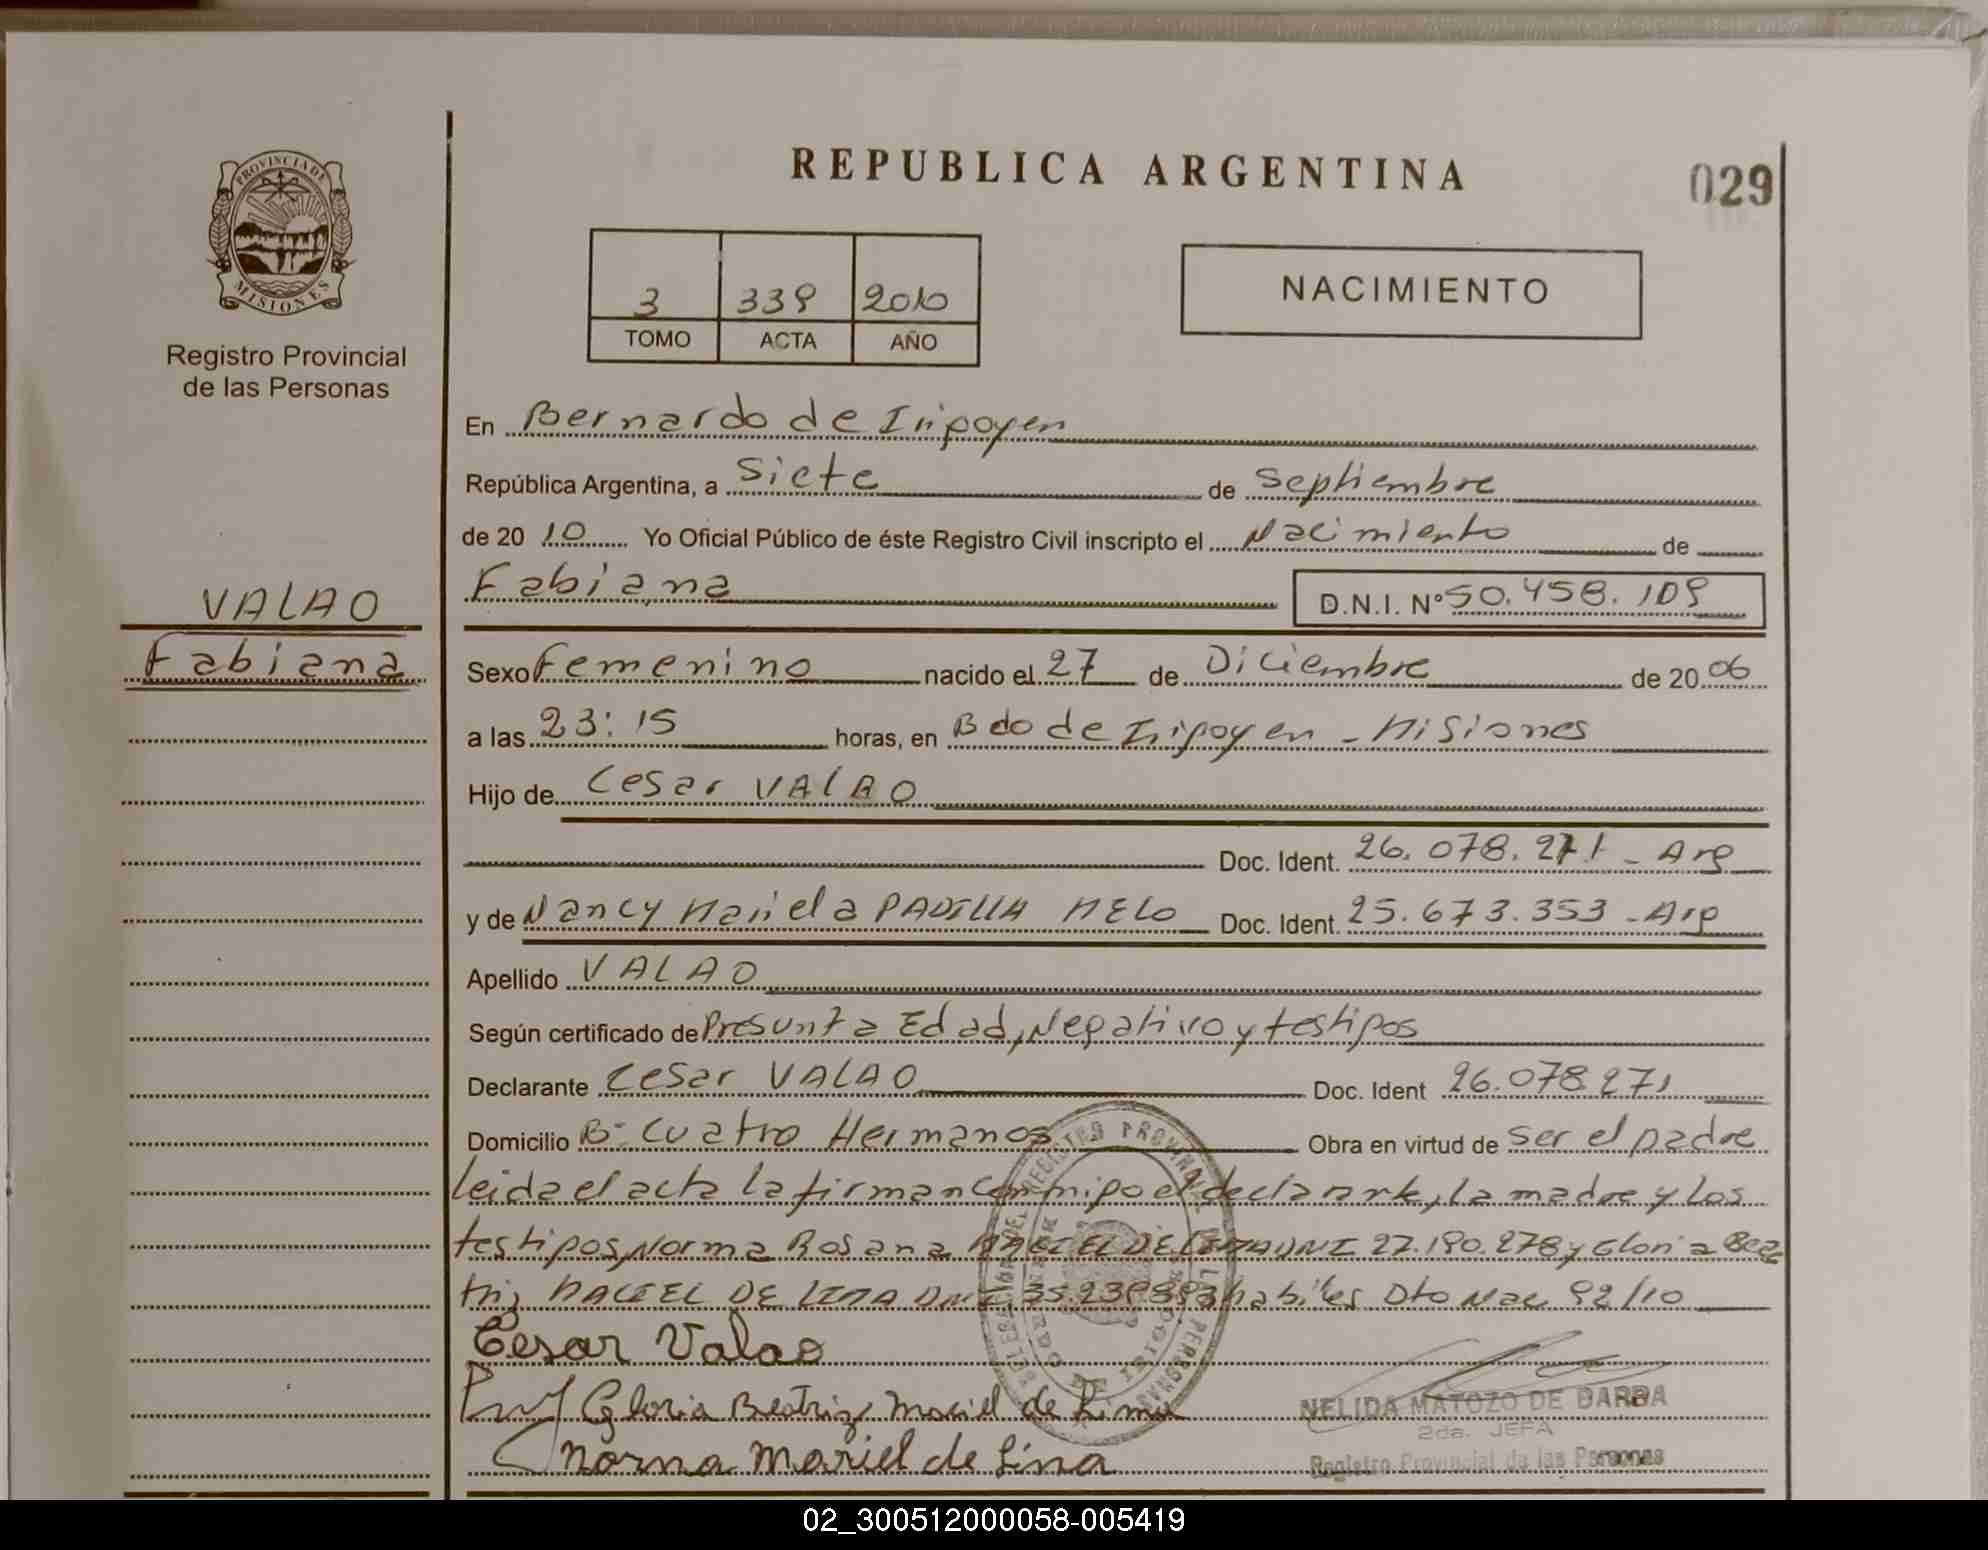 REPUBLICA ARGENTINA
029
PROVINCIA DE
MISIONES
Registro Provincial
de las Personas
3 339 2010
TOMO ACTA AÑO
NACIMIENTO
En Bernardo de Irigoyen
República Argentina, a Siete de Septiembre
de 2010 Yo Oficial Público de éste Registro Civil inscripto el Nacimiento de
Fabiana D.N.I. Nº 50.458.109
VALAO
Fabiana
Sexo Femenino nacido el 27 de Diciembre de 2006
a las 23:15 horas, en Bdo de Irigoyen - Misiones
Hijo de Cesar VALAO
Doc. Ident. 26.078.271 - Arg
y de Nancy Mariela PADILLA MELO Doc. Ident. 25.673.353 - Arg
Apellido VALAO
Según certificado de Presunta Edad, Negativo y testigos
Declarante Cesar VALAO Doc. Ident 26.078.271
Domicilio Bº Cuatro Hermanos Obra en virtud de ser el padre
leida el acta la firman conmigo el declarante, la madre y los
testigos Norma Rosana MACIEL DE LIMA DNI 27.190.278 y Gloria Bea
triz MACIEL DE LIMA DNI habiles Dto Nac 92/10
Cesar Valao
Gloria Beatriz Maciel de Lima
Norma Maciel de Lima
NELIDA MATOZO DE BARBA
2da. JEFA
Registro Provincial de las Personas
02_300512000058-005419